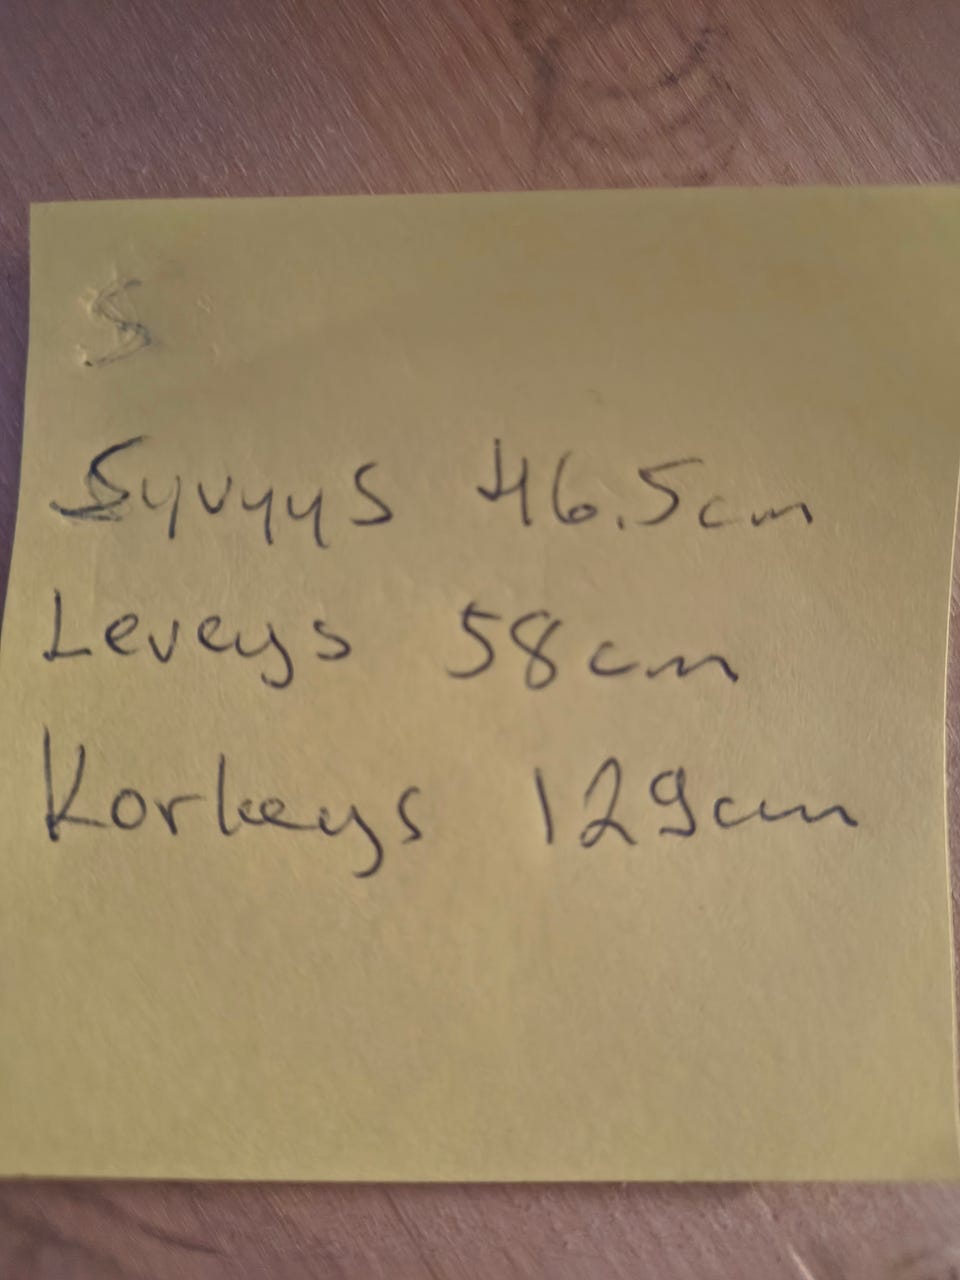 S
Syvyys 46.5cm
Leveys 58cm
Korkeys 129cm